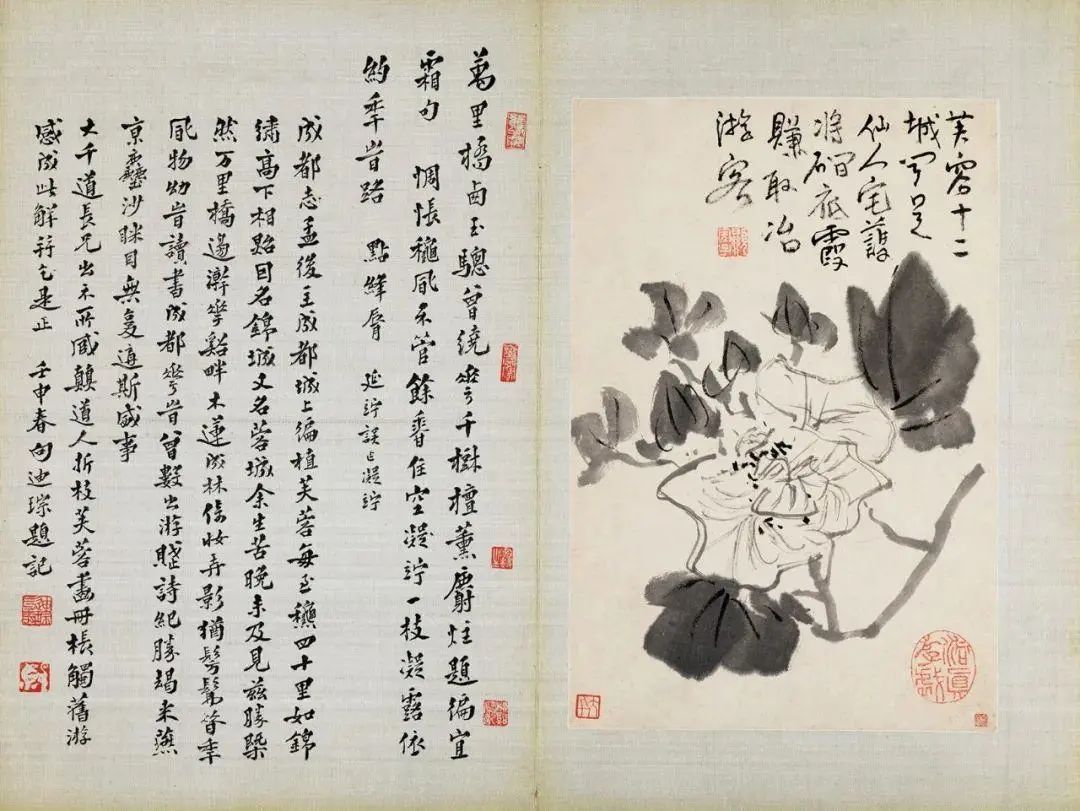 芙蓉十二
城是
仙人宅護
將底霞
賺取冶
游客
萬里橋卤玉驄曾繞花千樹檀薰麝炷題徧宜
霜句 惆悵穐風不管餘香住空凝竚一枝凝露依
約秊旹路 點絳脣 延竚誤占凝竚
成都志孟後主成都城上徧植芙蓉每至穐四十里如錦
繡高下相照因名錦城又名蓉城余生苦晚未及見茲勝槩
然万里橋邊澣花谿畔木蓮成林倚妝弄影猶髣髴當秊
風物幼旹讀書成都花旹曾數出游賦詩紀勝朅來燕
京塵沙眯目無复斯盛事
大千道長兄出示所臧顛道人折枝芙蓉畫冊棖觸舊游
感成此解幷乞是正 壬申春向迪琮題記